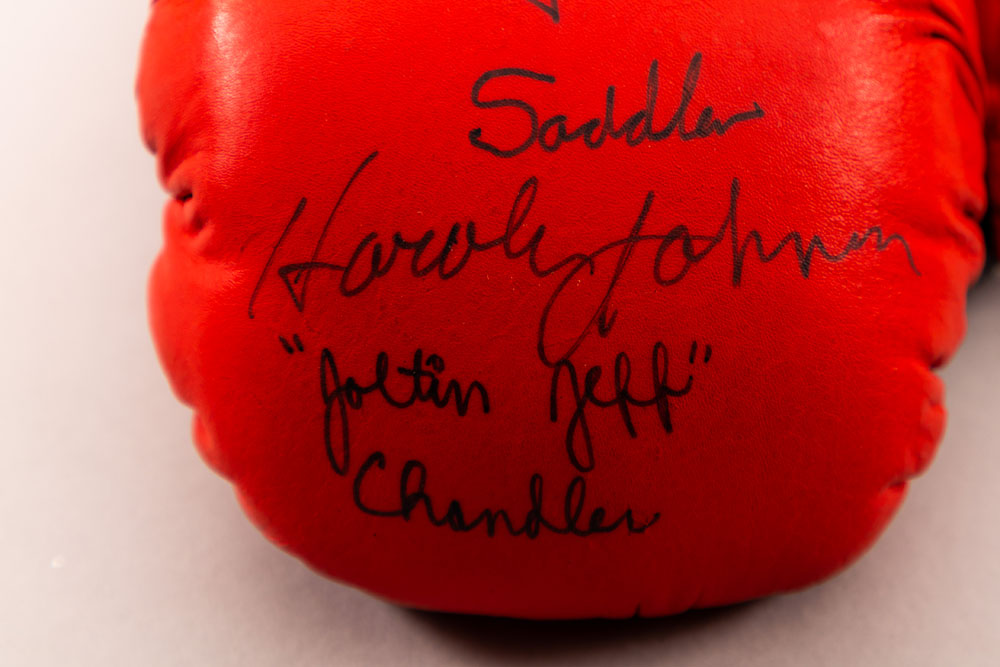 Saddler
Harold Johnson
"Joltin Jeff"
Chandler